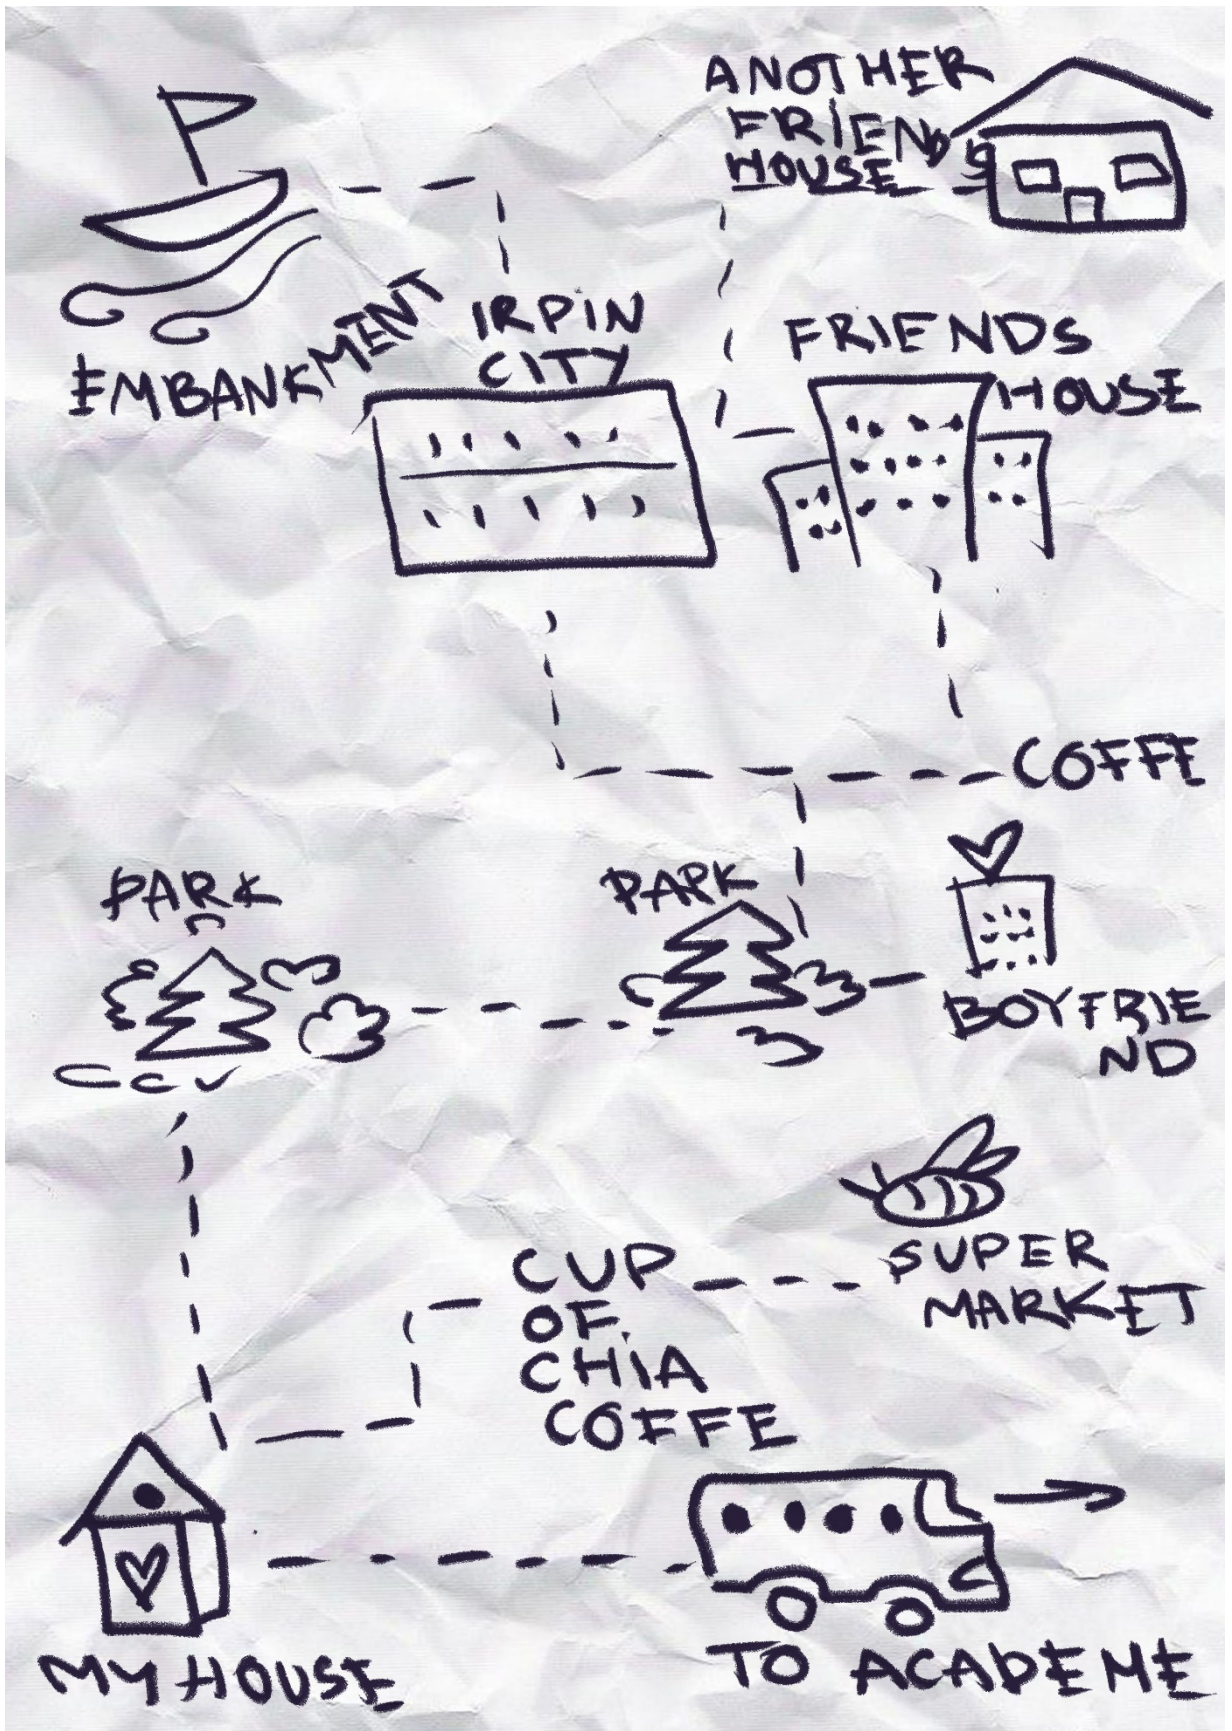 ANOTHER
FRIENDS
HOUSE
EMBANKMENT
IRPIN
CITY
FRIENDS
HOUSE
COFFE
PARK
PAPK
BOYFRIE
ND
SUPER
MARKET
CUP
OF.
CHIA
COFFE
MY HOUSE
TO ACADEME